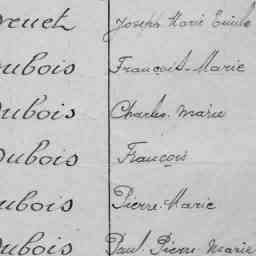 reuet Joseph Marie Emile
Dubois François-Marie
Dubois Charles-Marie
Dubois François
Dubois Pierre-Marie
Dubois Paul-Pierre-Marie